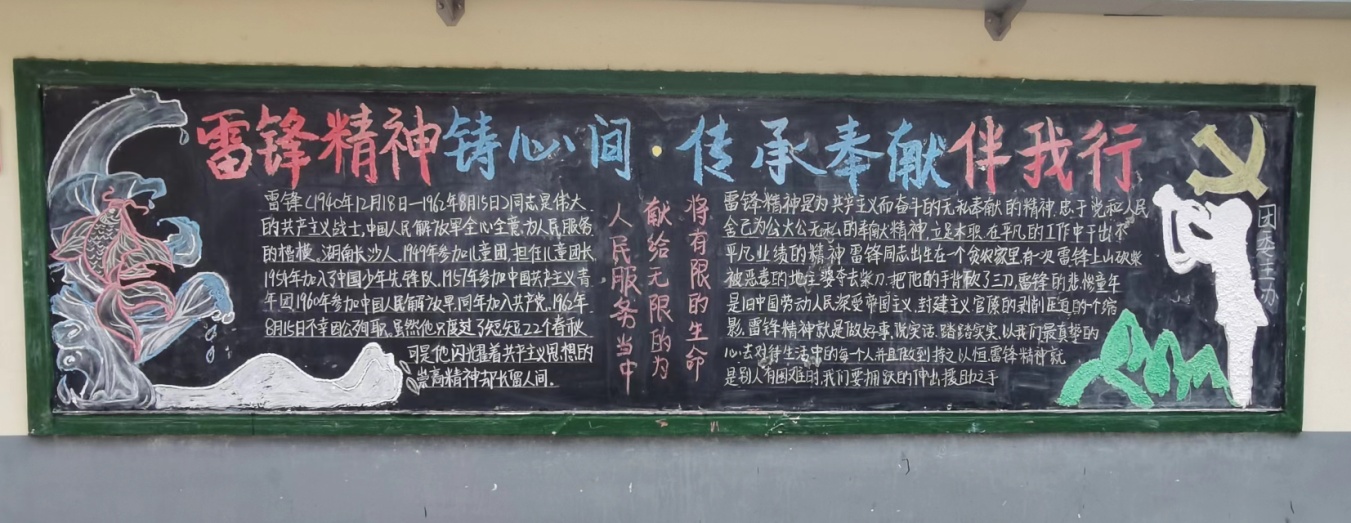 雷锋精神铸心间·传承奉献伴我行
雷锋(1940年12月18日—1962年8月15日)同志是伟大
的共产主义战士,中国人民解放军全心全意,为人民服务
的楷模。湖南长沙人。1949年参加儿童团,担任儿童团长
1954年加入了中国少年先锋队,1957年参加中国共产主义青
年团1960年参加中国人民解放军,同年加入共产党,196年
8月15日不幸因公殉职,虽然他只度过了短短22个春秋
可是他闪耀着共产主义思想的
崇高精神却长留人间.
将有限的生命
献给无限的为
人民服务当中
雷锋精神是为共产主义而奋斗的无私奉献的精神,忠于党和人民
舍己为公大公无私的奉献精神,立足本职在平凡的工作中干出不
平凡业绩的精神雷锋同志出生在一个贫农家里有一次雷锋上山砍柴
被恶毒的地主婆夺去柴刀.把他的手背砍了三刀,雷锋的悲惨童年
是旧中国劳动人民深受帝国主义,封建主义官原的剥削压迫的一个缩
影,雷锋精神就是做好事,说实话,踏踏实实,以我们最真挚的
心去对待生活中的每个人并且做到持之以恒雷锋精神就
是别人有困难时,我们要踊跃的伸出援助之手
团委主办